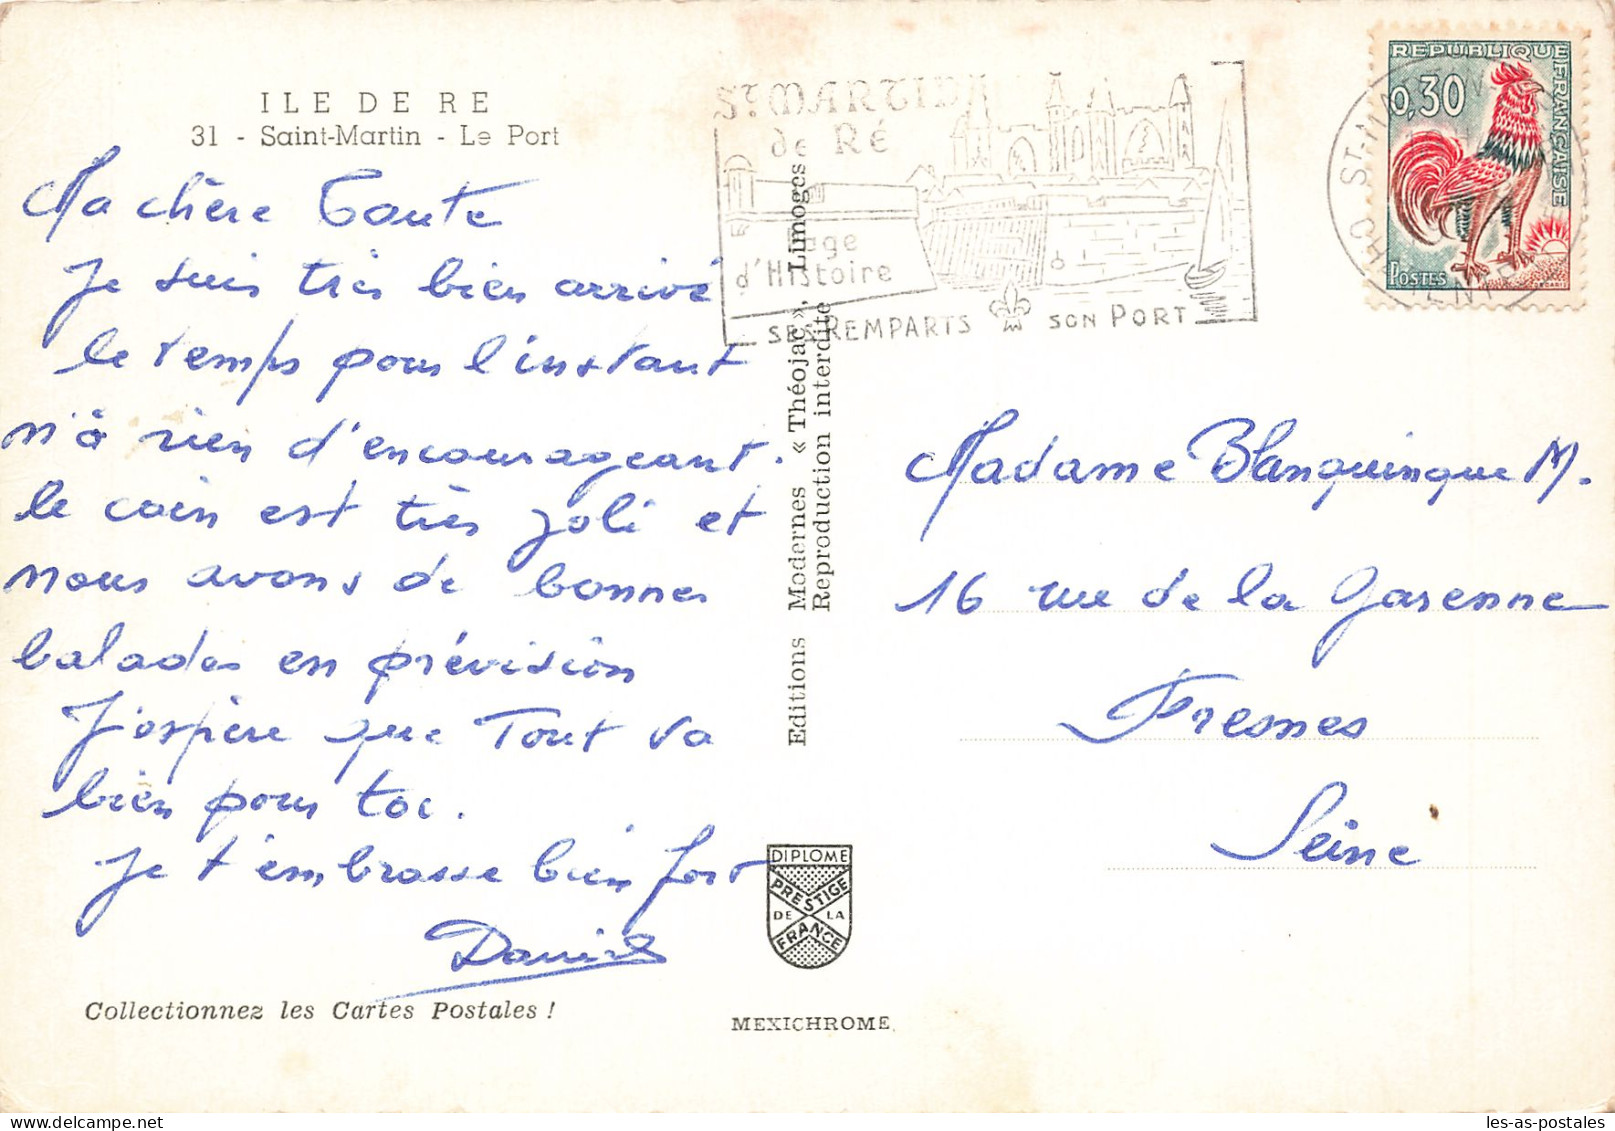 ILE DE RE
31 - Saint-Martin - Le Port
Ma chère Tante
Je suis très bien arrivé
le temps pour l'instant
n'a rien d'encourageant.
le coin est très joli et
nous avons de bonnes
balades en prévision
J'espère que Tout va
bien pour toi.
Je t'embrasse bien fort
Daniel
Collectionnez les Cartes Postales !
Editions Modernes « Théojac », Limoges
Reproduction interdite
DIPLOME
PRESTIGE
DE LA
FRANCE
MEXICHROME
ST MARTIN
de RÉ
Page
d'Histoire
SES REMPARTS SON PORT
REPUBLIQUE FRANÇAISE
0,30
POSTES
ST-M
CH
Madame Blanquinque M.
16 rue de la Garenne
Fresnes
Seine
les-as-postales.com